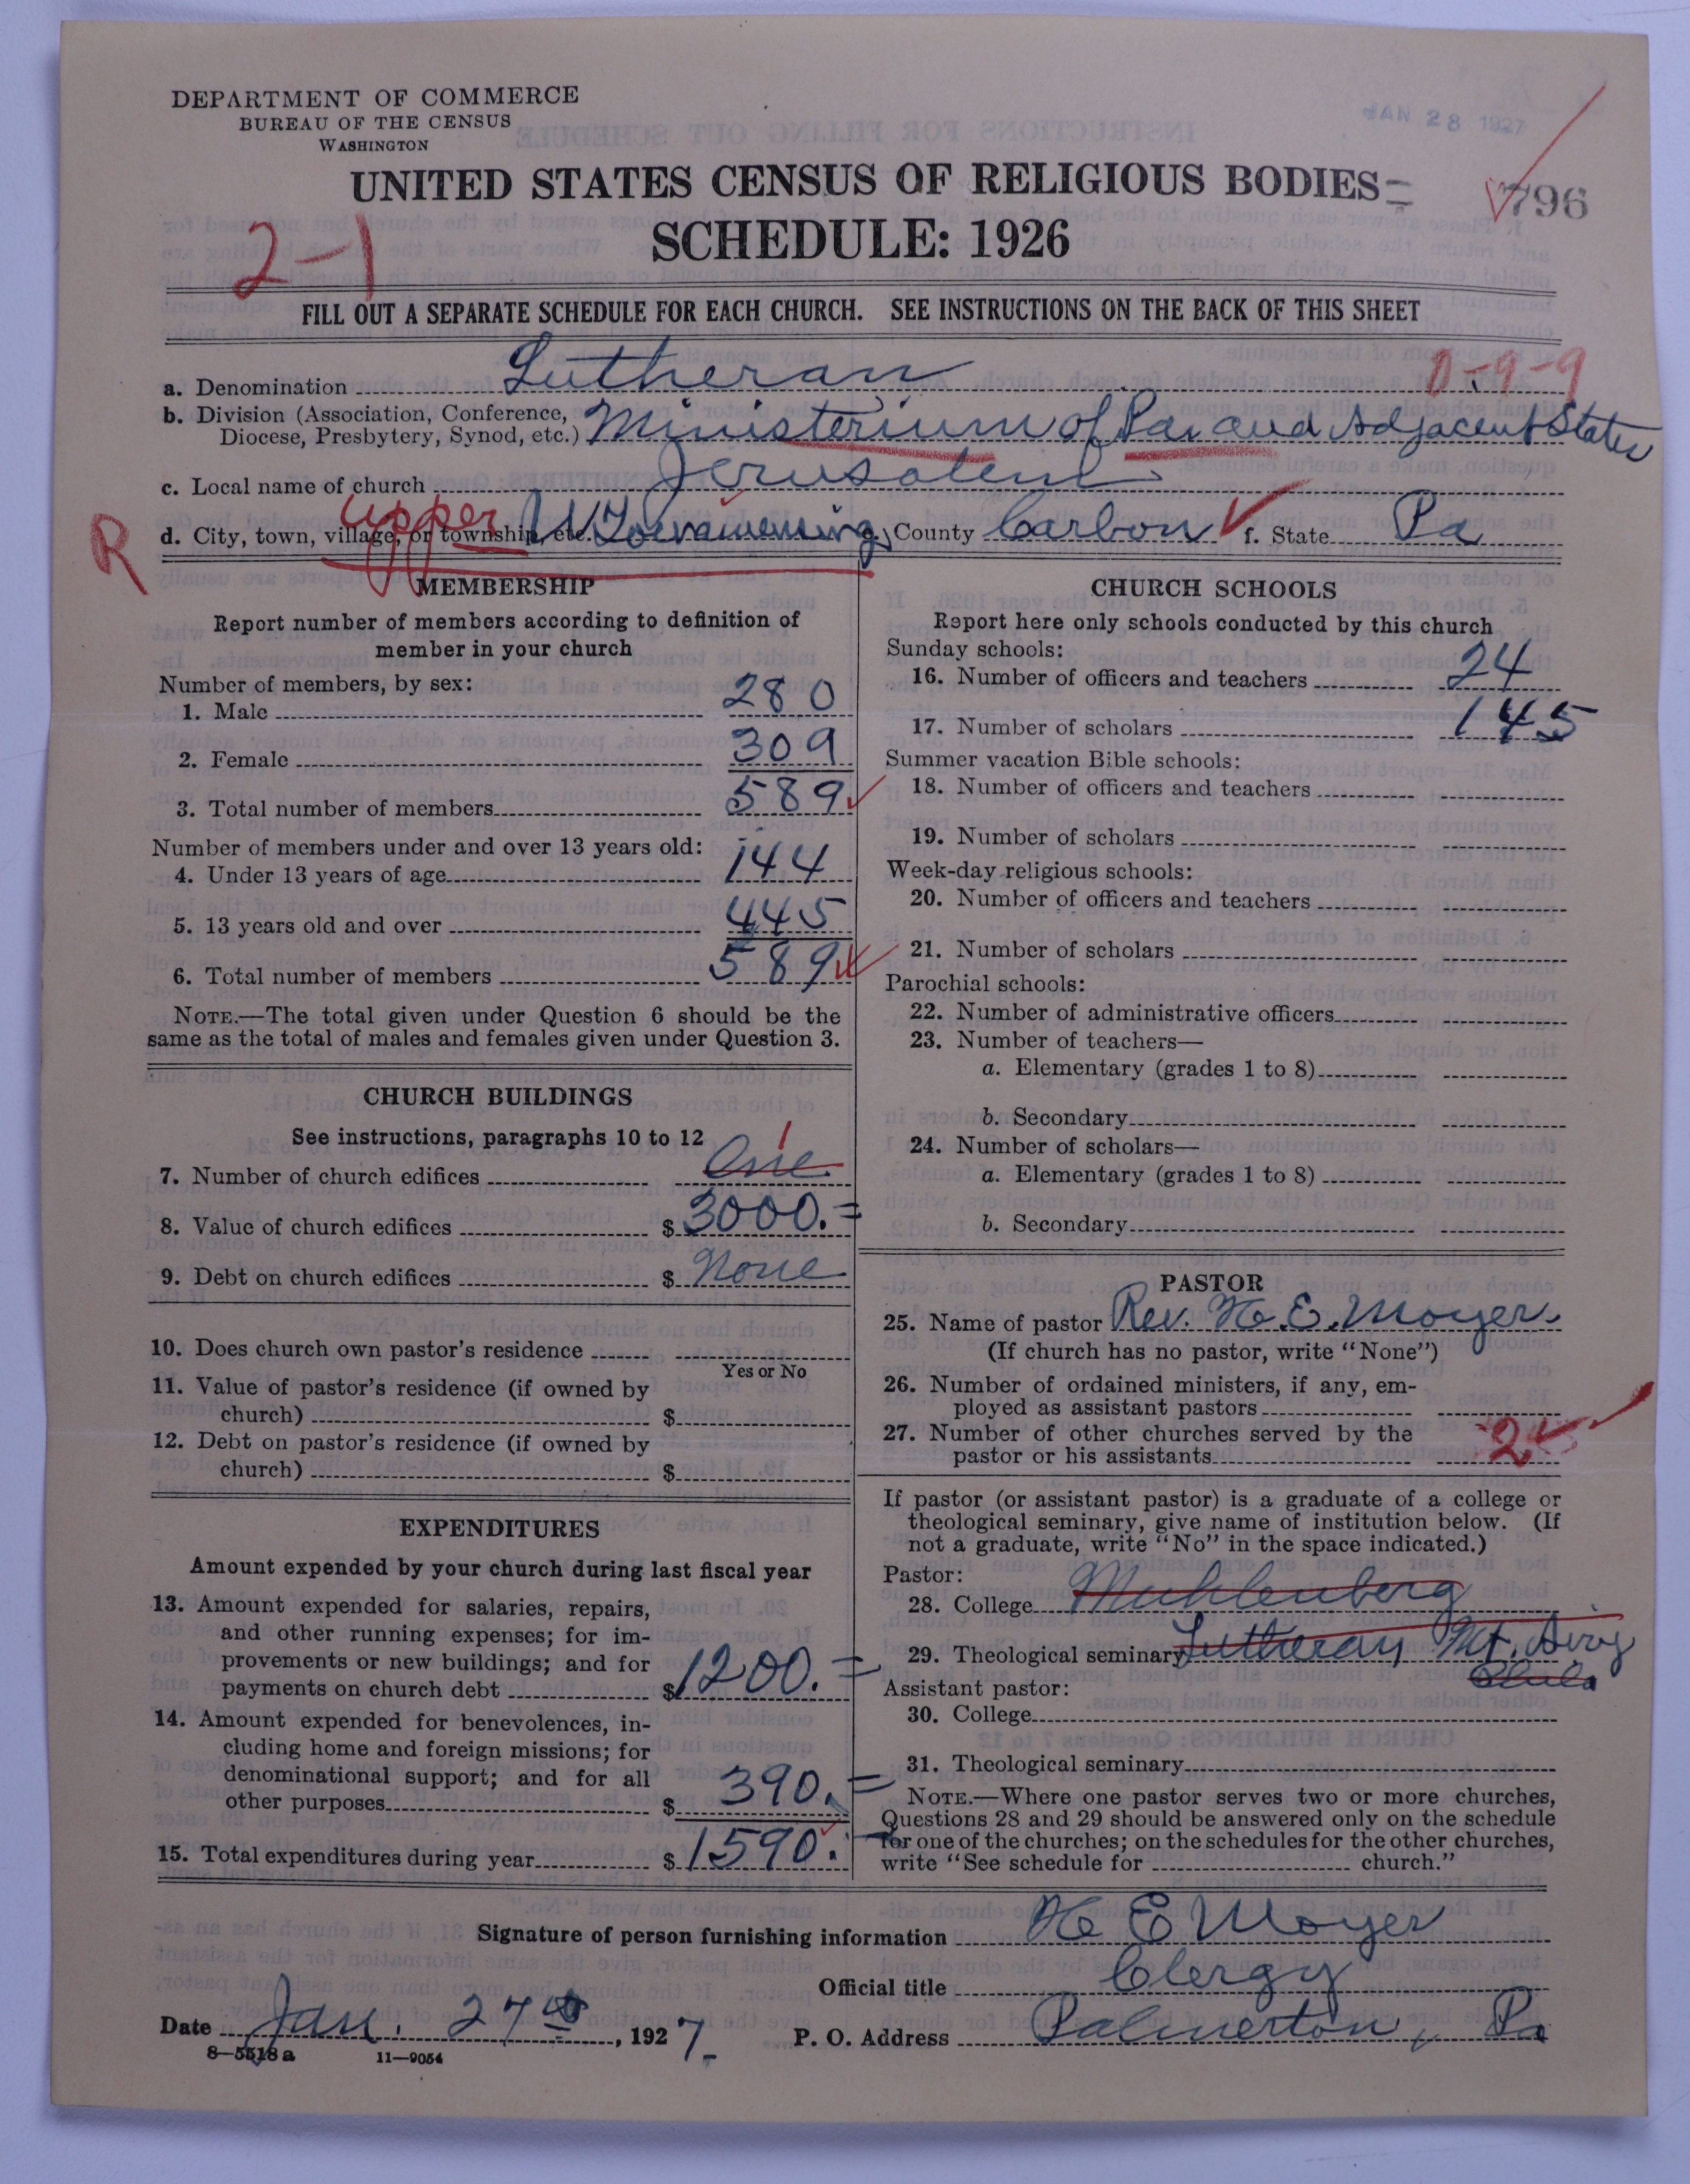 DEPARTMENT OF COMMERCE
BUREAU OF THE CENSUS
WASHINGTON
JAN 28 1927
UNITED STATES CENSUS OF RELIGIOUS BODIES
796
SCHEDULE: 1926
2-1
FILL OUT A SEPARATE SCHEDULE FOR EACH CHURCH. SEE INSTRUCTIONS ON THE BACK OF THIS SHEET
a. Denomination Lutheran 0-9-9
b. Division (Association, Conference, Diocese, Presbytery, Synod, etc.) Ministerium of Pa. and Adjacent States
c. Local name of church Jerusalem
R d. City, town, village, or township, etc. Upper Towamensing e. County Carbon f. State Pa
MEMBERSHIP
Report number of members according to definition of
member in your church
Number of members, by sex:
1. Male 280
2. Female 309
3. Total number of members 589
Number of members under and over 13 years old:
4. Under 13 years of age 144
5. 13 years old and over 445
6. Total number of members 589
NOTE.—The total given under Question 6 should be the
same as the total of males and females given under Question 3.
CHURCH BUILDINGS
See instructions, paragraphs 10 to 12
7. Number of church edifices One 1
8. Value of church edifices $ 3000.=
9. Debt on church edifices $ None
10. Does church own pastor's residence
Yes or No
11. Value of pastor's residence (if owned by
church) $
12. Debt on pastor's residence (if owned by
church) $
EXPENDITURES
Amount expended by your church during last fiscal year
13. Amount expended for salaries, repairs,
and other running expenses; for im-
provements or new buildings; and for
payments on church debt $ 1200.=
14. Amount expended for benevolences, in-
cluding home and foreign missions; for
denominational support; and for all
other purposes $ 390.=
15. Total expenditures during year $ 1590.
CHURCH SCHOOLS
Report here only schools conducted by this church
Sunday schools:
16. Number of officers and teachers 24
17. Number of scholars 145
Summer vacation Bible schools:
18. Number of officers and teachers
19. Number of scholars
Week-day religious schools:
20. Number of officers and teachers
21. Number of scholars
Parochial schools:
22. Number of administrative officers
23. Number of teachers—
a. Elementary (grades 1 to 8)
b. Secondary
24. Number of scholars—
a. Elementary (grades 1 to 8)
b. Secondary
PASTOR
25. Name of pastor Rev. H. E. Moyer
(If church has no pastor, write "None")
26. Number of ordained ministers, if any, em-
ployed as assistant pastors
27. Number of other churches served by the
pastor or his assistants 2
If pastor (or assistant pastor) is a graduate of a college or
theological seminary, give name of institution below. (If
not a graduate, write "No" in the space indicated.)
Pastor:
28. College Muhlenberg
29. Theological seminary Lutheran Mt. Airy
Phila
Assistant pastor:
30. College
31. Theological seminary
NOTE.—Where one pastor serves two or more churches,
Questions 28 and 29 should be answered only on the schedule
for one of the churches; on the schedules for the other churches,
write "See schedule for church."
Signature of person furnishing information H E Moyer
Official title Clergy
Date Jan. 27th, 1927. P. O. Address Palmerton, Pa
8-5518 a 11—9054